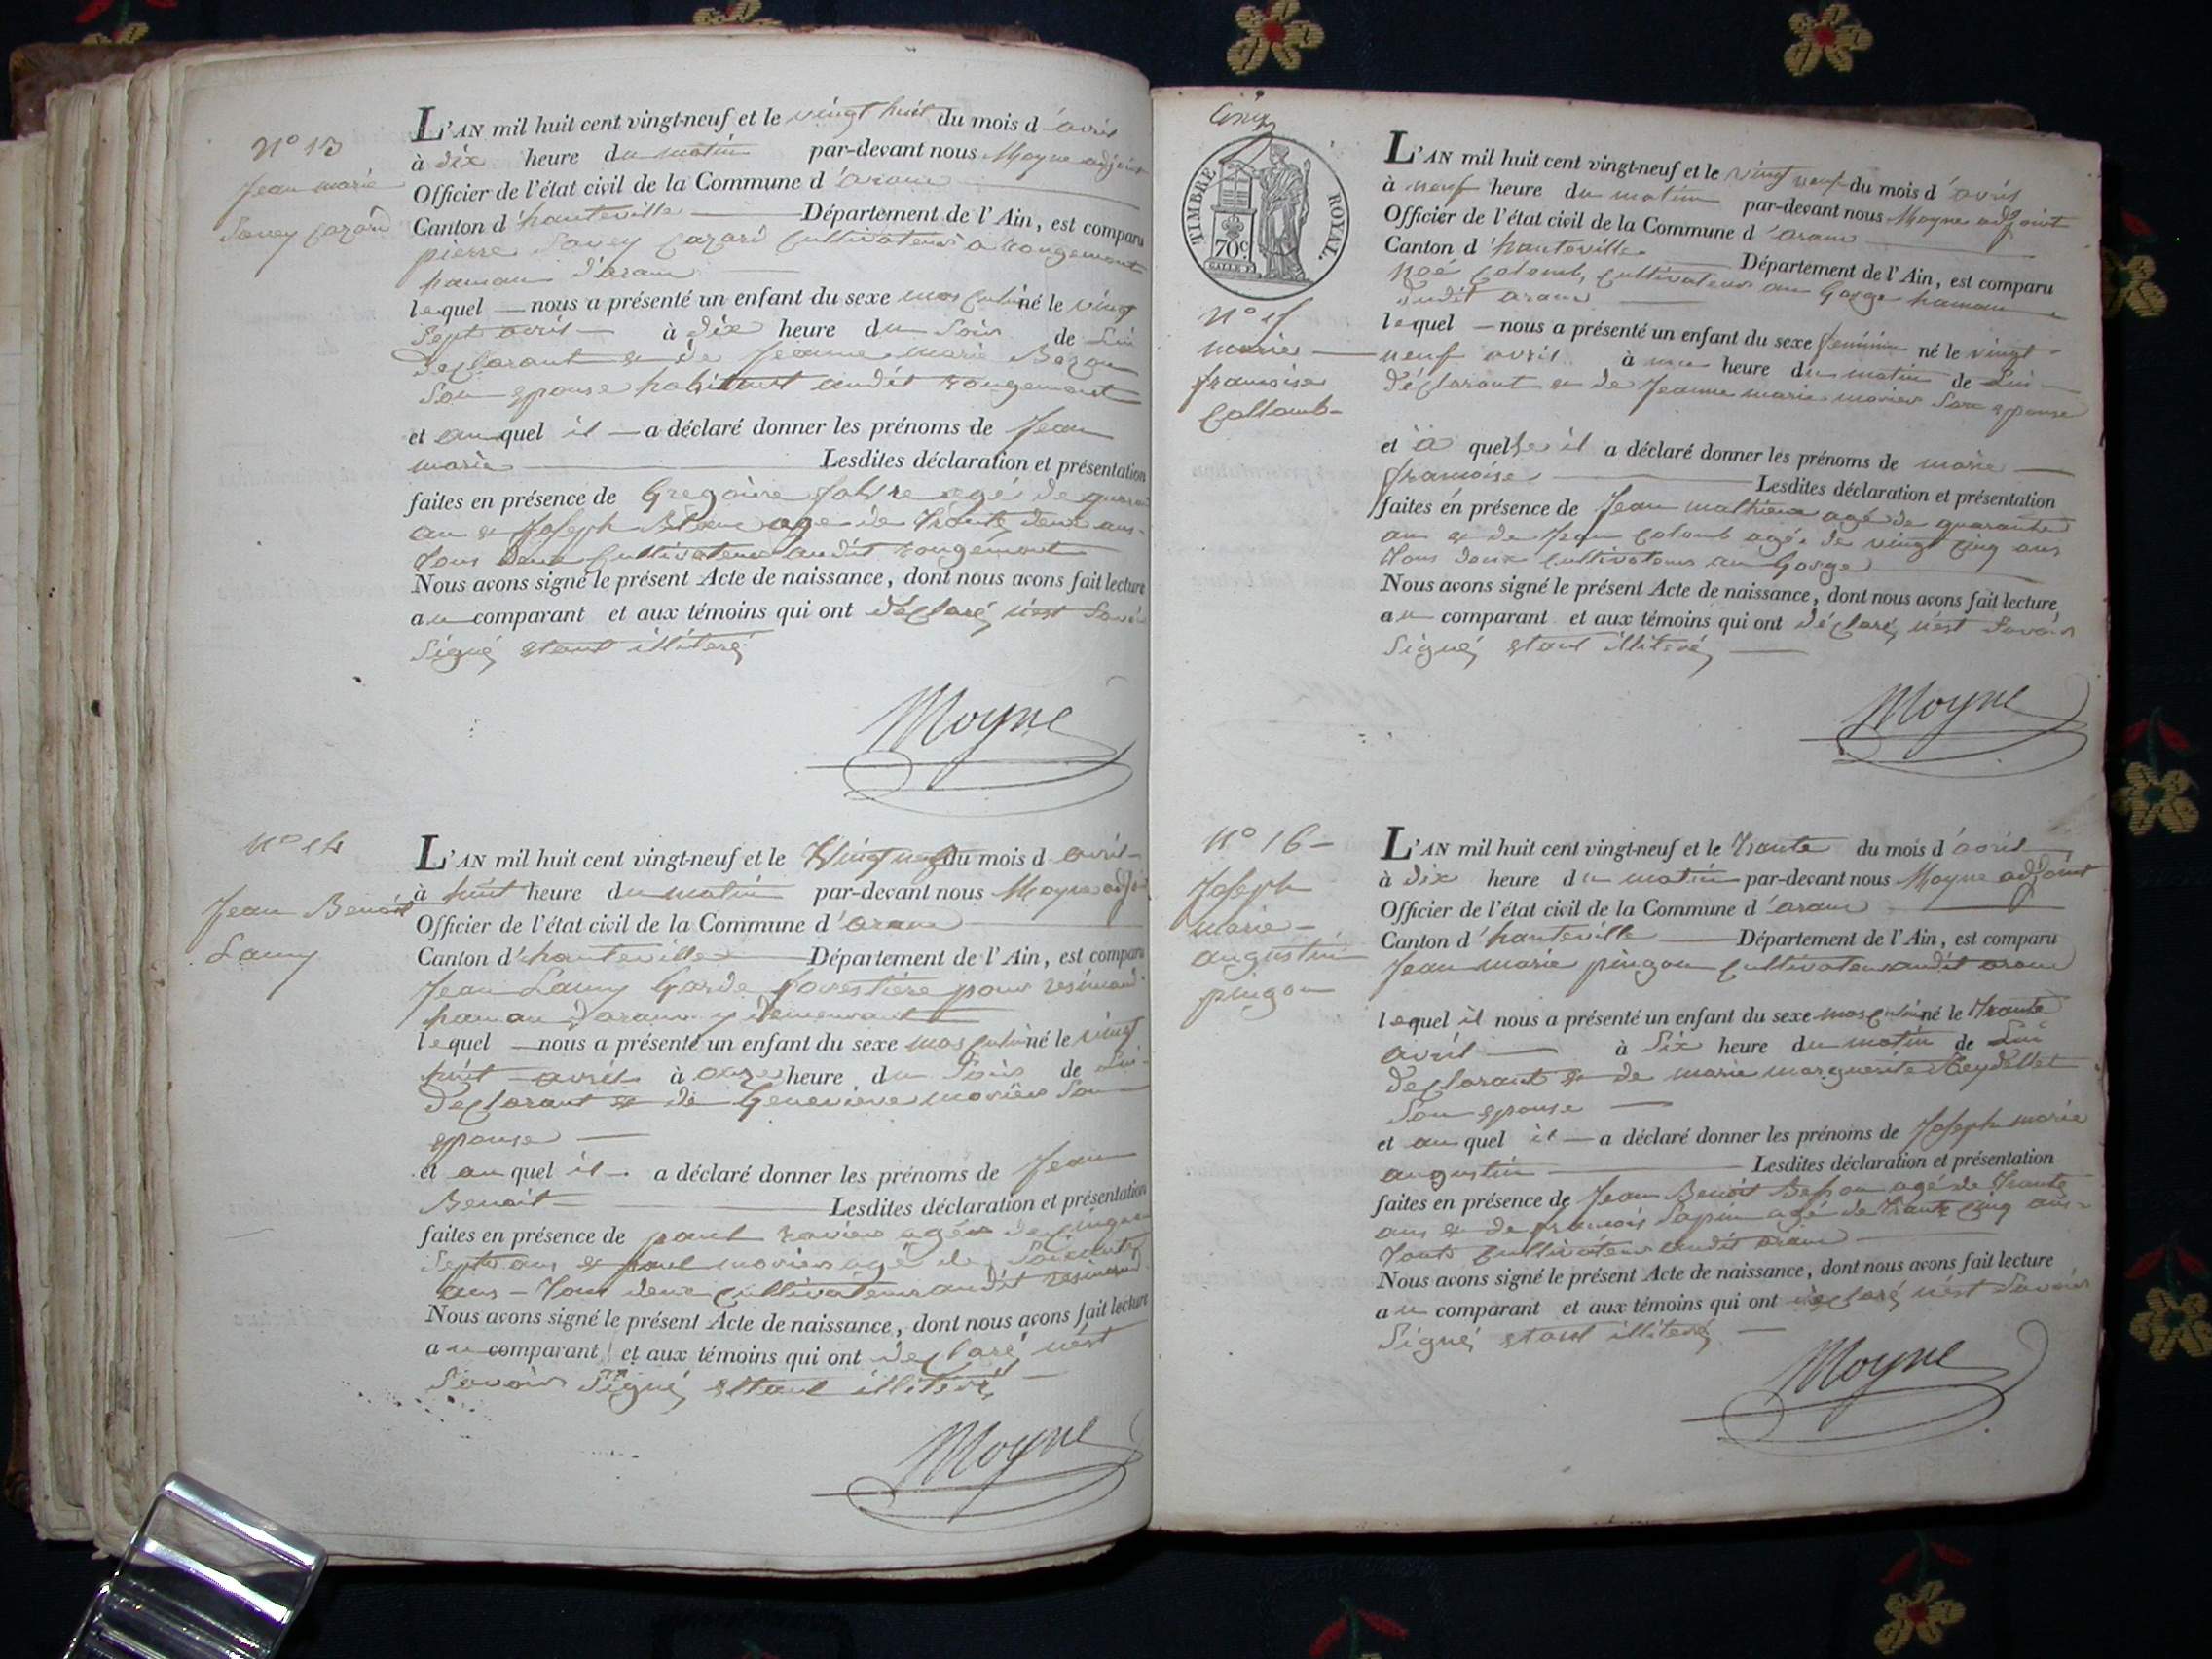 N° 13
Jean marie
Savey cazard
L'AN mil huit cent vingt-neuf et le vingt huit du mois d'avril
à dix heure du matin par-devant nous Moyne adjoint
Officier de l'état civil de la Commune d'aranc
Canton d'hauteville Département de l'Ain, est comparu
pierre Savey cazard cultivateur a rougemont
hamau d'aranc
lequel nous a présenté un enfant du sexe masculin né le vingt
sept avril à dix heure du soir de Lui
declarant et de Jeanne marie Bozon
Son epouse habitant audit rougemont
et auquel il a déclaré donner les prénoms de Jean
marie Lesdites déclaration et présentation
faites en présence de Gregoire fabre agé de
an et Joseph Blanc age de trante deux ans
tous deux cultivateur audit rougemont
Nous avons signé le présent Acte de naissance, dont nous avons fait lecture
au comparant et aux témoins qui ont déclaré n'est Savoir
Signé etant illiteré
Moyne
N° 14
Jean Benoit
Lamy
L'AN mil huit cent vingt-neuf et le vingt neuf du mois d'avril
à huit heure du matin par-devant nous Moyne adjoint
Officier de l'état civil de la Commune d'aranc
Canton d'hauteville Département de l'Ain, est comparu
Jean Lamy Garde forestière pour resinand
hamau d'aranc y demeurant
lequel nous a présenté un enfant du sexe masculin né le vingt
huit avril à onze heure du Soir de Lui
declarant et de Genevieve moviere Son
epouse
et auquel il a déclaré donner les prénoms de Jean
Benoit Lesdites déclaration et présentation
faites en présence de paul agés de
Sept ans et paul movier agé de Soixante
ans tous deux cultivateur audit resinand
Nous avons signé le présent Acte de naissance, dont nous avons fait lecture
au comparant et aux témoins qui ont declaré n'est
Savoir Signé etant illiteré
Moyne
Cinq
TIMBRE ROYAL.
70c.
N° 15
marie
francoise
Collomb
L'AN mil huit cent vingt-neuf et le vingt neuf du mois d'avril
à neuf heure du matin par-devant nous Moyne adjoint
Officier de l'état civil de la Commune d'aranc
Canton d'hauteville Département de l'Ain, est comparu
noé Colomb, cultivateur au Gorge hamau
dudit aranc
lequel nous a présenté un enfant du sexe feminin né le vingt
neuf avril à une heure du matin de Lui
déclarant et de Jeanne marie movier Son epouse
et à quelle il a déclaré donner les prénoms de marie
francoise Lesdites déclaration et présentation
faites en présence de Jean mathieu agé de quarante
an et de Jean Colomb agé de vingt cinq ans
tous deux cultivateur au Gorge
Nous avons signé le présent Acte de naissance, dont nous avons fait lecture
au comparant et aux témoins qui ont déclaré n'est Savoir
Signé etant illiteré
Moyne
N° 16
Joseph
marie
augustin
pingon
L'AN mil huit cent vingt-neuf et le trante du mois d'avril
à dix heure du matin par-devant nous Moyne adjoint
Officier de l'état civil de la Commune d'aranc
Canton d'hauteville Département de l'Ain, est comparu
Jean marie pingon cultivateur audit aranc
lequel il nous a présenté un enfant du sexe masculin né le trante
avril à Six heure du matin de Lui
declarant et de marie marguerite Reydellet
Son epouse
et auquel il a déclaré donner les prénoms de Joseph marie
augustin Lesdites déclaration et présentation
faites en présence de Jean Benoit Besson agé de trante
ans et de francois Sapin agé de trante cinq ans
touts cultivateur audit aranc
Nous avons signé le présent Acte de naissance, dont nous avons fait lecture
au comparant et aux témoins qui ont declaré n'est Savoir
Signé etant illiteré
Moyne